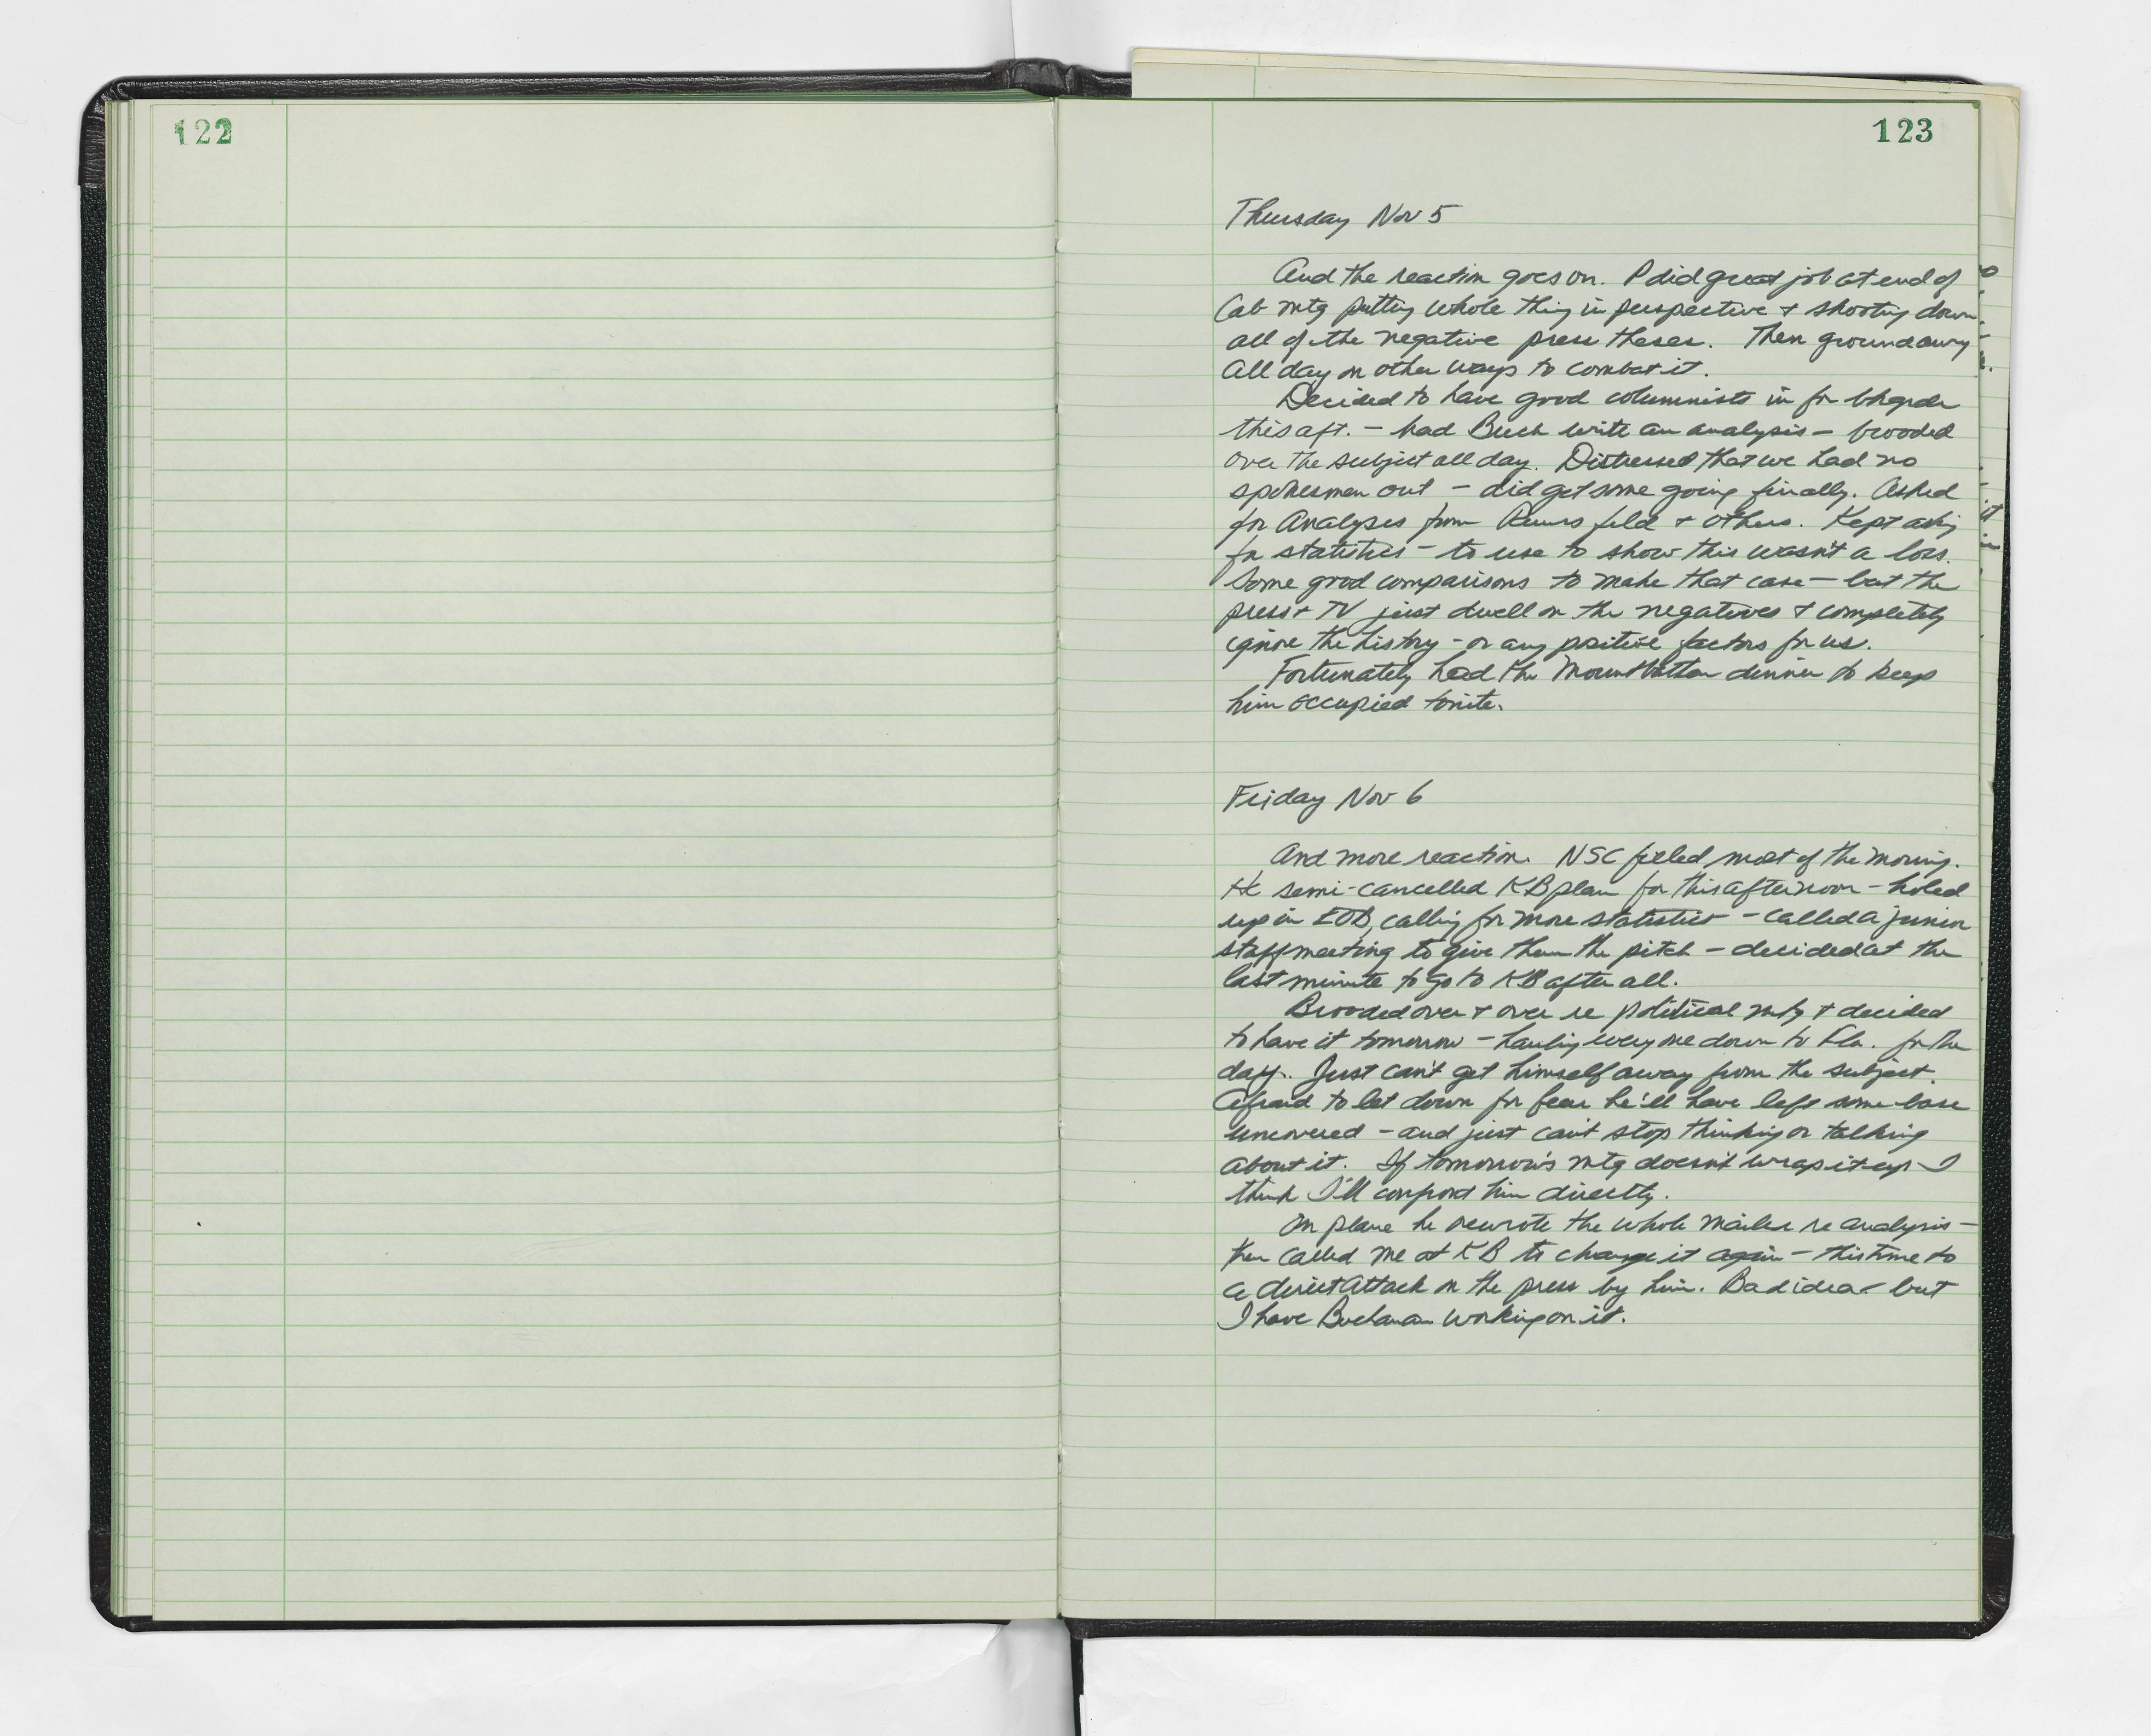 122
123
Thursday Nov 5
And the reaction goes on. P did great job at end of
Cab mtg putting whole thing in perspective + shooting down
all of the negative press theses. Then ground away
all day on other ways to combat it.
Decided to have good columnists in for bkgrdr
this aft. – had Buch write an analysis – brooded
over the subject all day. Distressed that we had no
spokesmen out – did get some going finally. Asked
for Analyses from Rumsfeld + others. Kept askg
for statistics – to use to show this wasn't a loss.
Some good comparisons to make that case – but the
press + TV just dwell on the negatives + completely
ignore the history – or any positive factors for us.
Fortunately had the Mountbatten dinner to keep
him occupied tonite.
Friday Nov 6
And more reaction. NSC filled most of the morning.
He semi-cancelled KB plan for this afternoon – holed
up in EOB, calling for more statistics – called a junior
staff meeting to give them the pitch – decided at the
last minute to go to KB after all.
Brooded over + over re political mtg + decided
to have it tomorrow – hauling everyone down to Fla. for the
day. Just can't get himself away from the subject.
Afraid to let down for fear he'll have left some base
uncovered – and just can't stop thinking or talking
about it. If tomorrow's mtg doesn't wrap it up I
think I'll confront him directly.
On plane he rewrote the whole mailer re analysis –
then called me at KB to change it again – this time to
a direct attack on the press by him. Bad idea – but
I have Buchanan working on it.